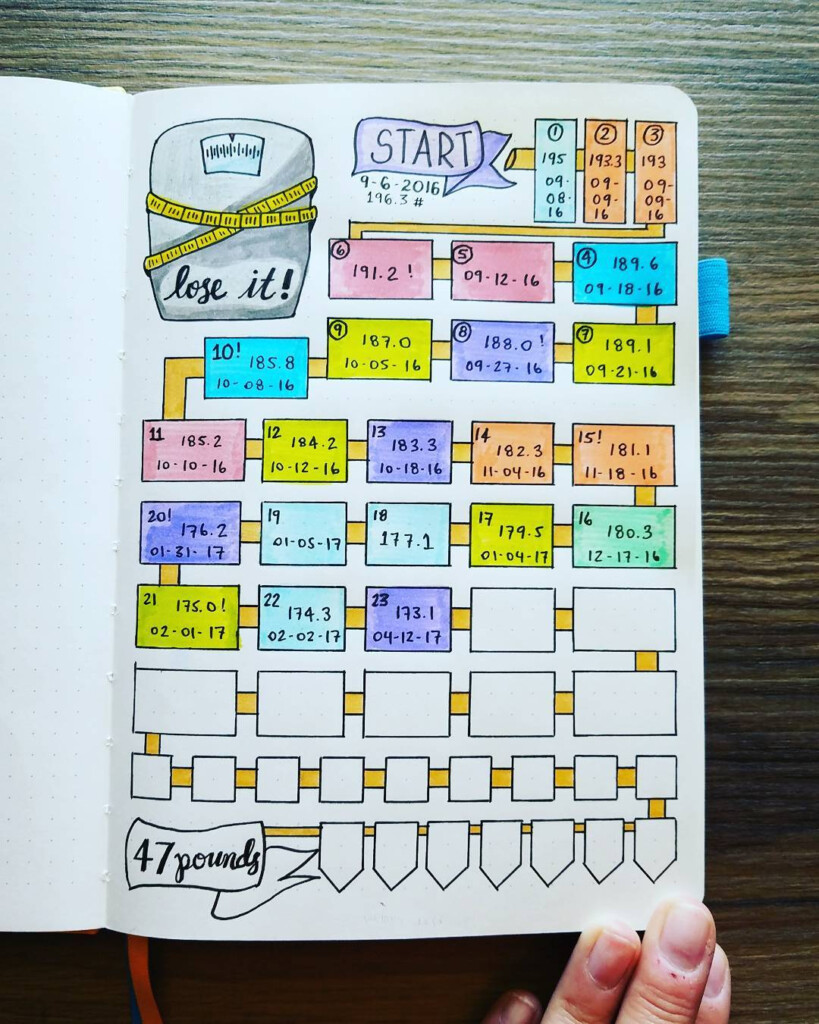 lose it!
START
9-6-2016
196.3 #
① 
195
09-
08-
16
②
193.3
09-
09-
16
③
193
09-
09-
16
⑥ 191.2 !
⑤
09-12-16
④ 189.6
09-18-16
⑨ 187.0
10-05-16
⑧ 188.0!
09-27-16
⑦ 189.1
09-21-16
10! 185.8
10-08-16
11 185.2
10-10-16
12 184.2
10-12-16
13 183.3
10-18-16
14 182.3
11-04-16
15! 181.1
11-18-16
20! 176.2
01-31-17
19
01-05-17
18 177.1
17 179.5
01-04-17
16 180.3
12-17-16
21 175.0!
02-01-17
22 174.3
02-02-17
23 173.1
04-12-17
47 pounds